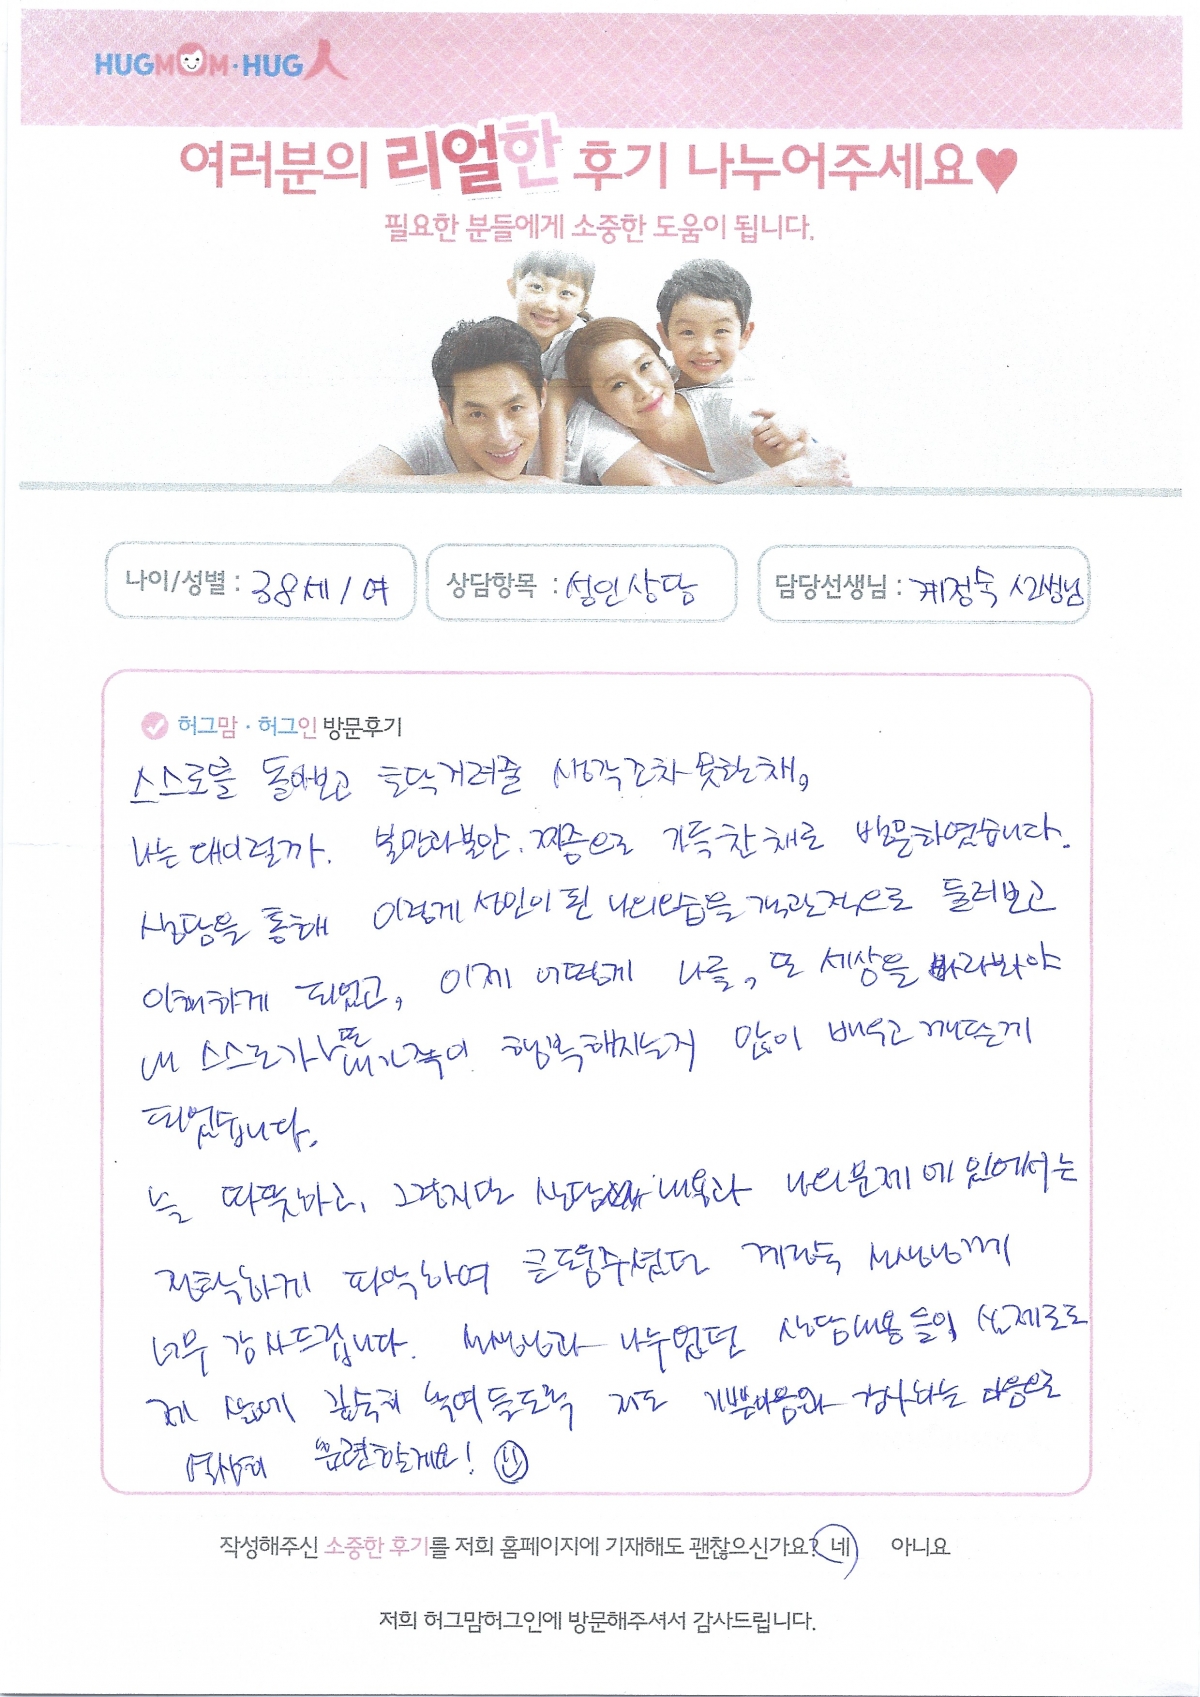 HUGMOM·HUG人
여러분의 리얼한 후기 나누어주세요♥
필요한 분들에게 소중한 도움이 됩니다.
나이/성별 : 38세 / 여
상담항목 : 성인상담
담당선생님 : 계정숙 선생님
허그맘 · 허그인 방문후기
스스로를 돌아보고 토닥거려줄 생각조차 못한채,
나는 왜이럴까. 불만과 불안. 짜증으로 가득찬채로 방문하였습니다.
상담을 통해 이렇게 성인이 된 나의모습을 객관적으로 둘러보고
이해하게 되었고, 이제 어떻게 나를, 또 세상을 바라봐야
내 스스로가, 또 내가족이 행복해지는지 많이 배우고 깨닫는게
되었습니다.
늘 따뜻하고, 그렇지만 상담 내용과 나의문제에 있어서는
정확하게 파악하여 큰도움주셨던 계정숙 선생님께
너무 감사드립니다. 선생님과 나누었던 상담내용들이, 실제로도
제 삶에 깊숙히 녹여들도록 저도 기쁜마음와 감사하는 마음으로
열심히 훈련할게요!
작성해주신 소중한 후기를 저희 홈페이지에 기재해도 괜찮으신가요? 네 아니요
저희 허그맘허그인에 방문해주셔서 감사드립니다.